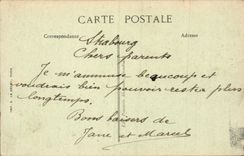 CARTE POSTALE
Correspondance
Adresse
Strasbourg
Chers parents
Je m'ammuse beaucoup et
voudrais bien pouvoir rester plus
longtemps.
Bons baisers de
Jane et Marcel